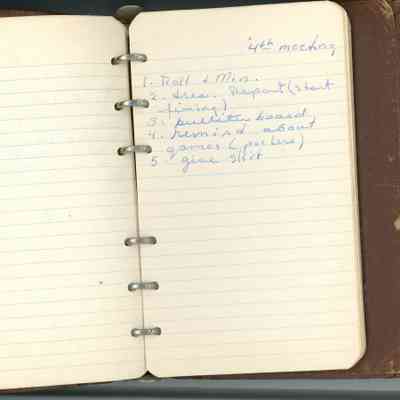 4th meeting
1. Roll & Min.
2. Treas. Report (start
timing)
3. bulletin board,
4. remind about
games (posters)
5. give Skit